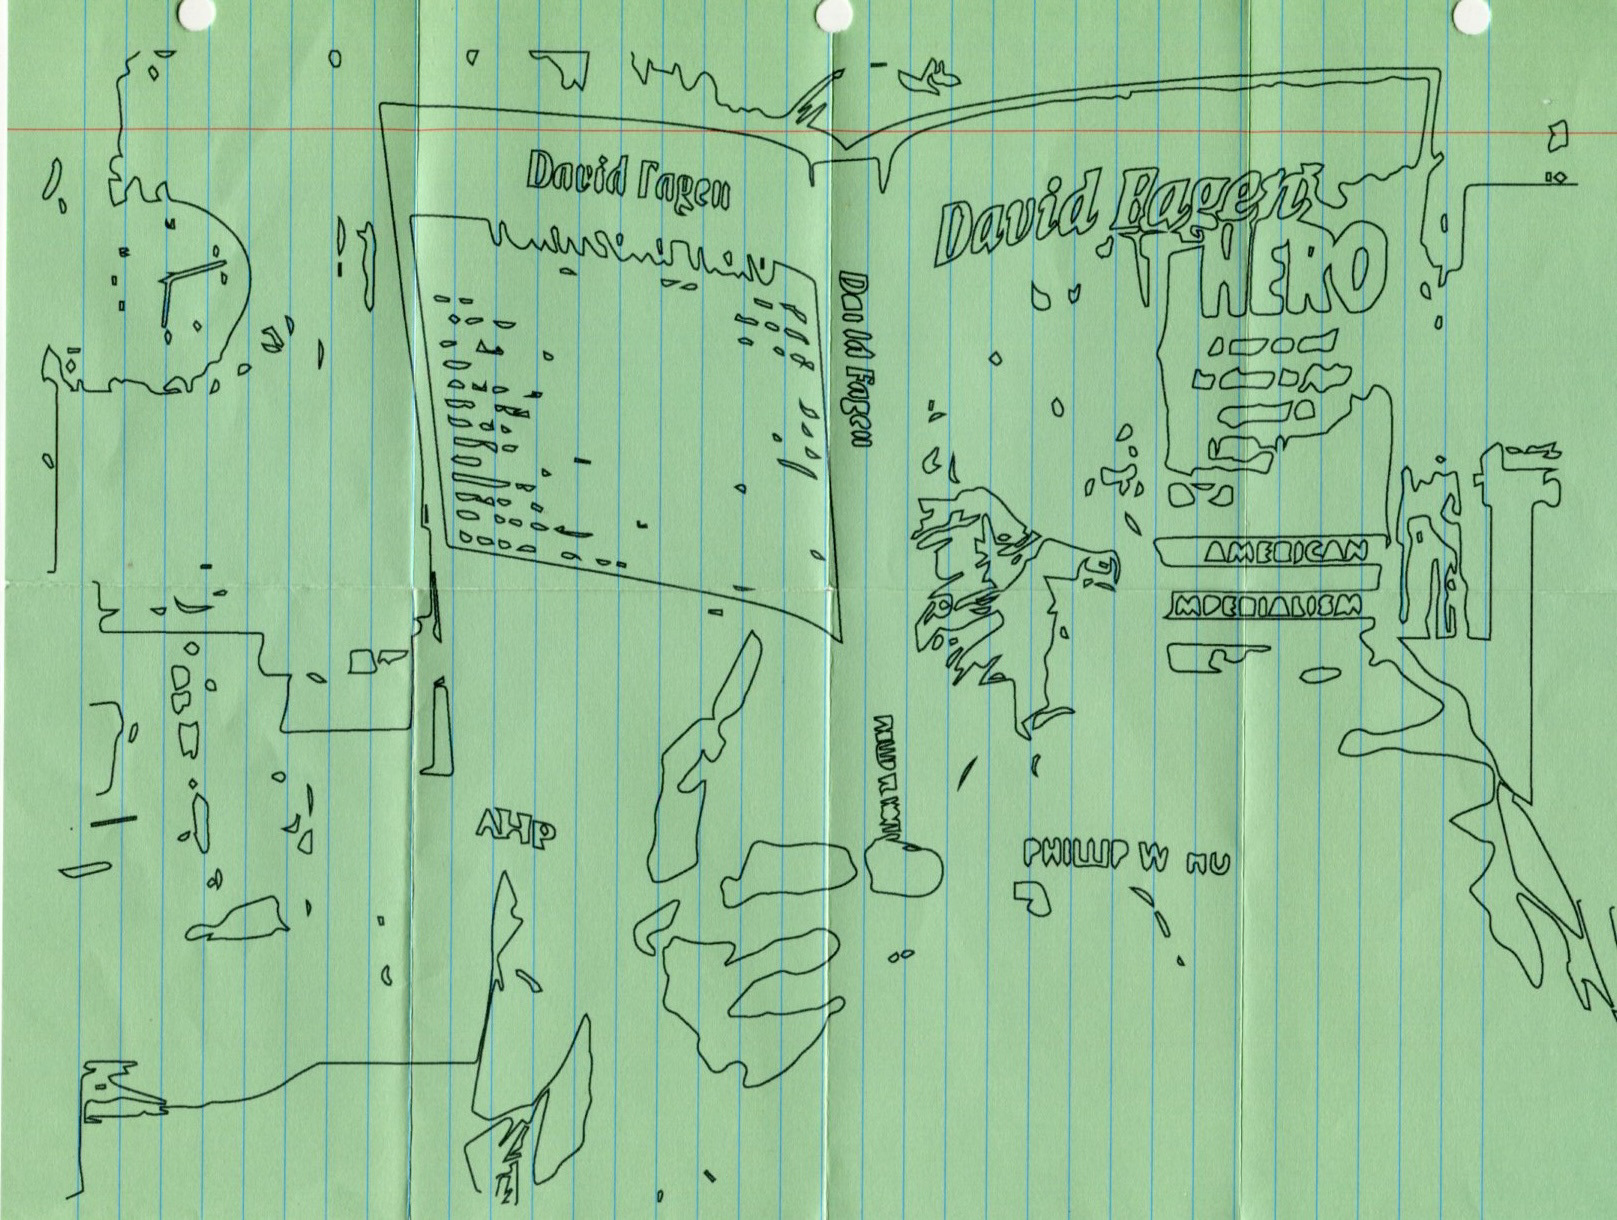 David Fagen
David Fagen
HERO
David Fagen
AMERICAN
MPERIALISM
AHP
PHILLIP W HU